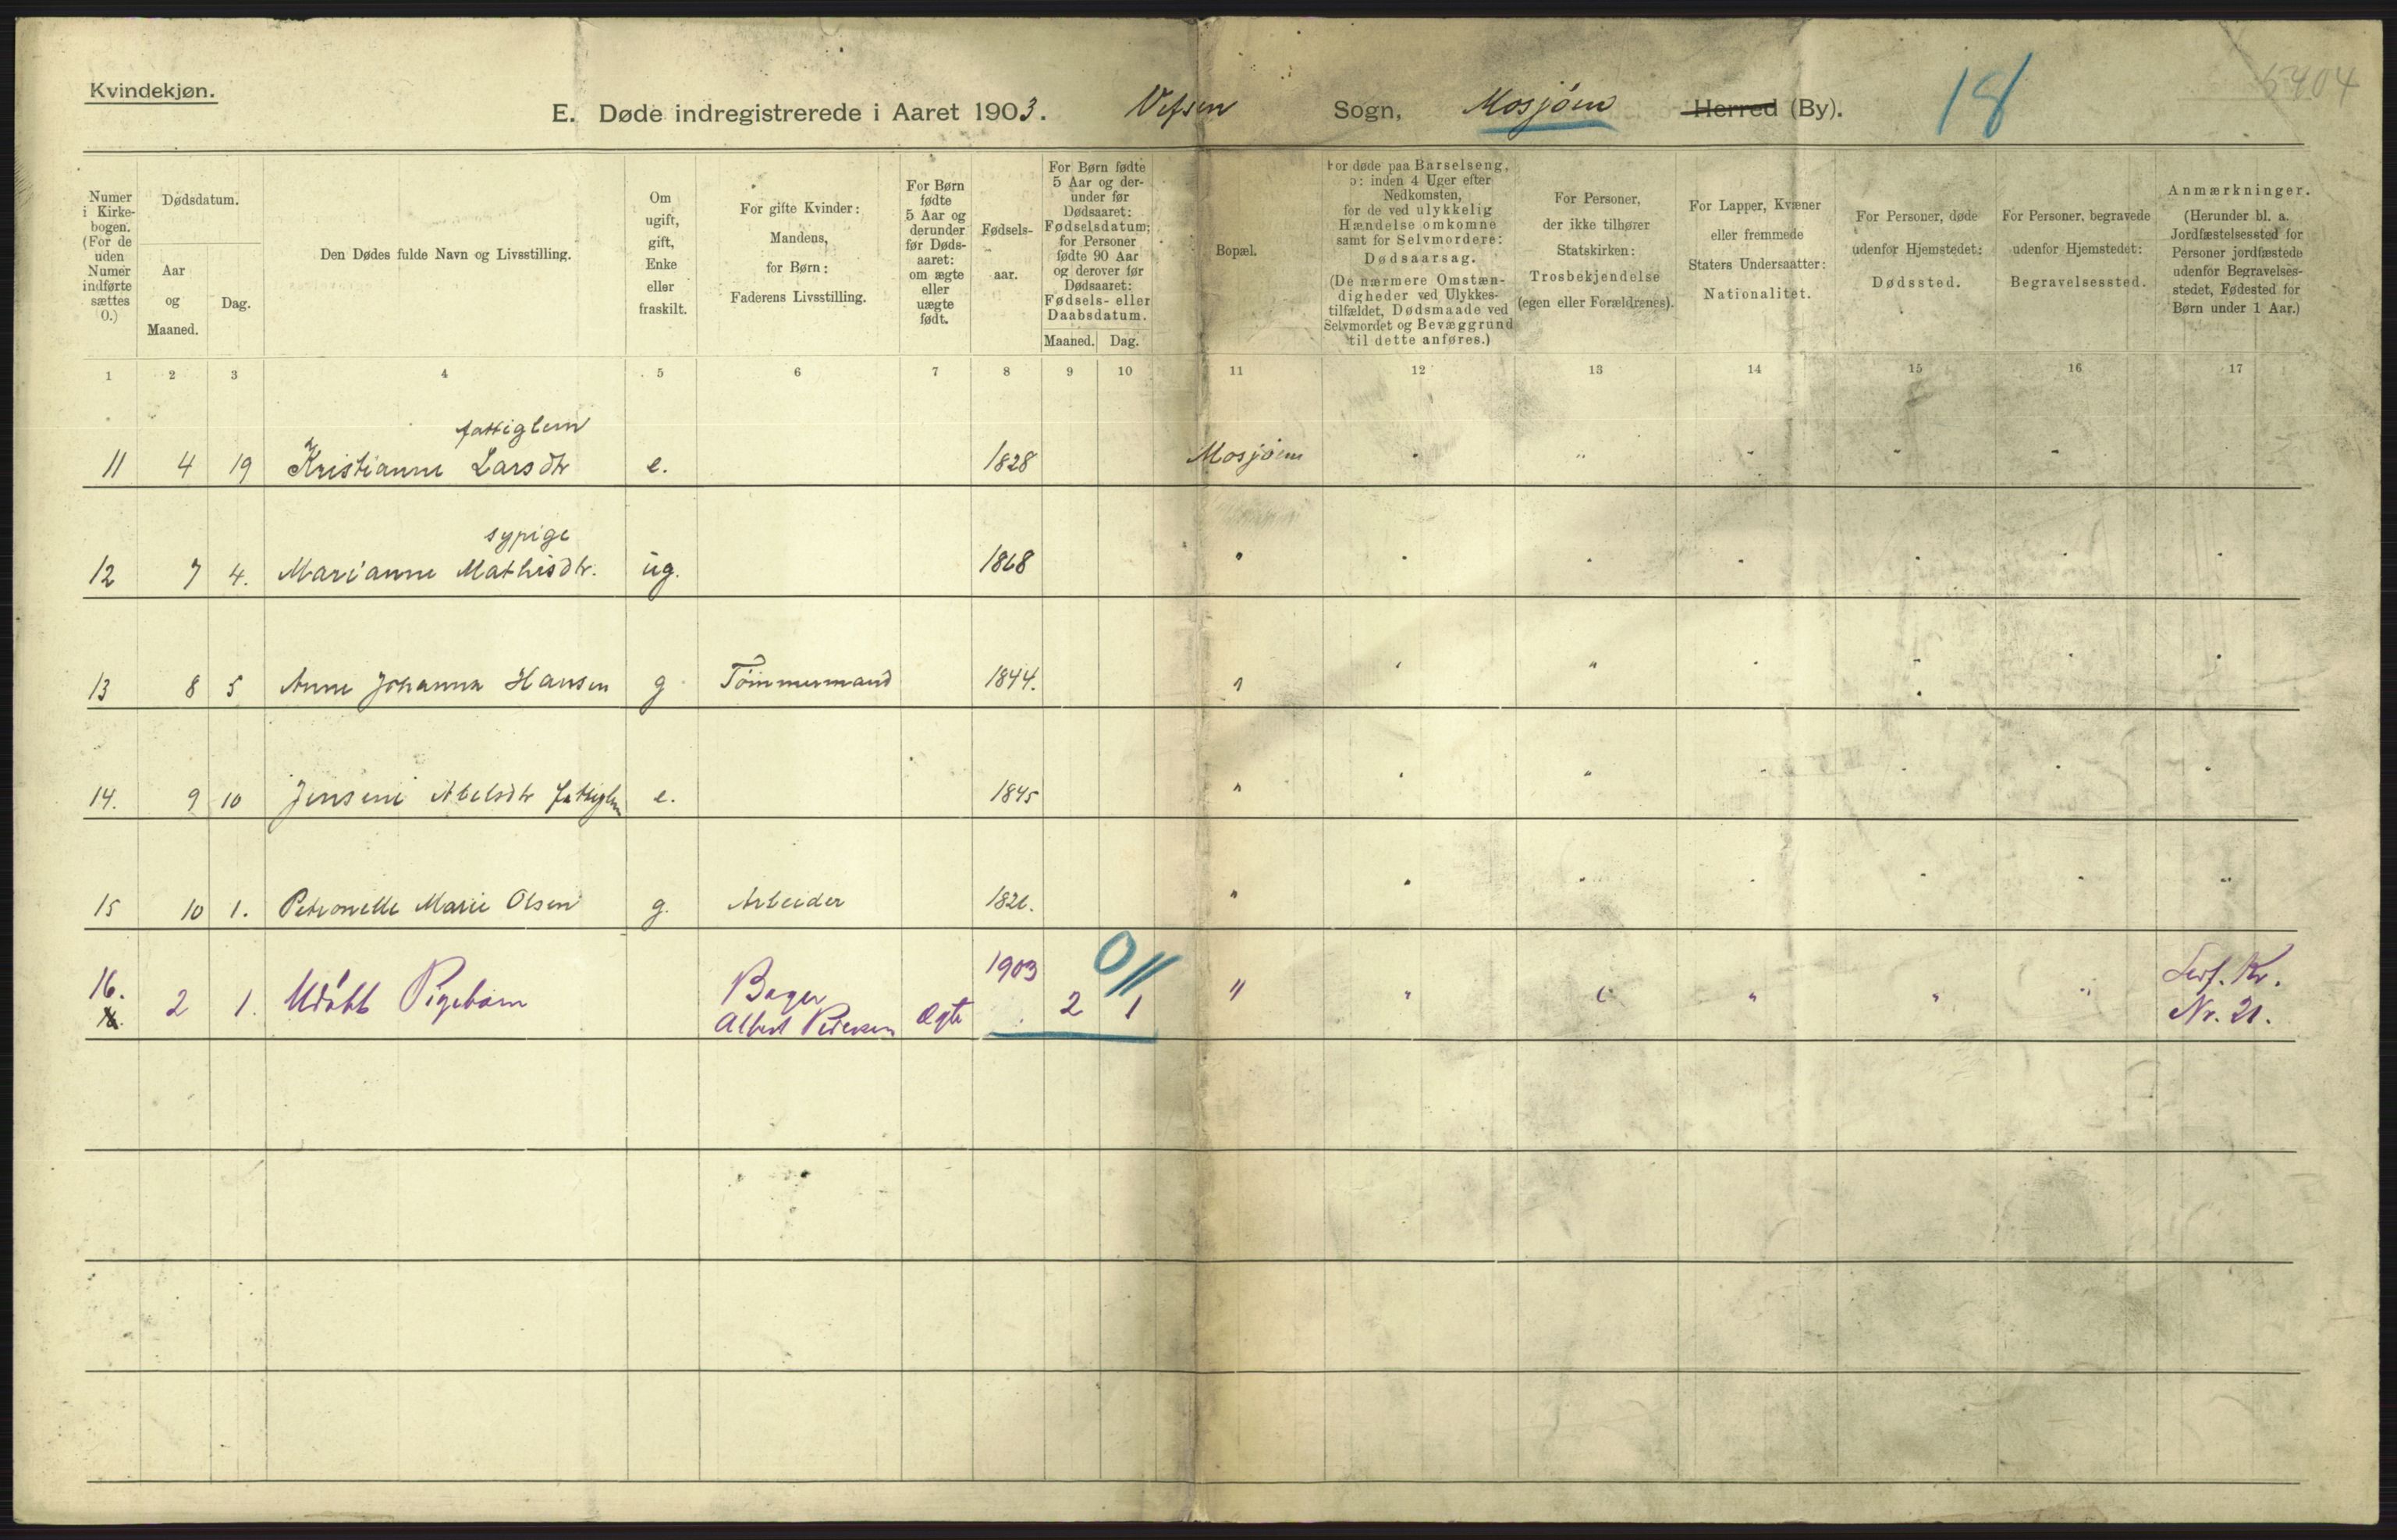 Kvindekjøn.
E. Døde indregistrerede i Aaret 1903. Vefsen Sogn, Mosjøen Herred (By). 18 5404
Numer i Kirke-bogen. (For de uden Numer indførte sættes 0.)
Dødsdatum.
Aar og Maaned.
Dag.
Den Dødes fulde Navn og Livsstilling.
Om ugift, gift, Enke eller fraskilt.
For gifte Kvinder: Mandens, for Børn: Faderens Livsstilling.
For Børn fødte 5 Aar og derunder før Døds-aaret: om ægte eller uægte født.
Fødsels-aar.
For Børn fødte 5 Aar og der-under før Dødsaaret: Fødselsdatum; for Personer fødte 90 Aar og derover før Dødsaaret: Fødsels- eller Daabsdatum.
Maaned. Dag.
Bopæl.
For døde paa Barselseng, ɔ: inden 4 Uger efter Nedkomsten, for de ved ulykkelig Hændelse omkomne samt for Selvmordere: Dødsaarsag. (De nærmere Omstæn-digheder ved Ulykkes-tilfældet, Dødsmaade ved Selvmordet og Bevæggrund til dette anføres.)
For Personer, der ikke tilhører Statskirken: Trosbekjendelse (egen eller Forældrenes).
For Lapper, Kvæner eller fremmede Staters Undersaatter: Nationalitet.
For Personer, døde udenfor Hjemstedet: Dødssted.
For Personer, begravede udenfor Hjemstedet: Begravelsessted.
Anmærkninger. (Herunder bl. a. Jordfæstelsessted for Personer jordfæstede udenfor Begravelses-stedet, Fødested for Børn under 1 Aar.)
1 2 3 4 5 6 7 8 9 10 11 12 13 14 15 16 17
fattiglem
11 4 19 Kristianne Larsdtr e. 1828 Mosjøen " " " " "
sypige
12 7 4. Marianne Mathisdtr. ug. 1868 " " " " " " "
13 8 5 Anne Johanna Hansen g Tømmermand 1844. " " " " " " "
14. 9 10 Jensine Abelsdtr fattiglem e. 1845 " " " " " "
15 10 1. Petronelle Marie Olsen g. Arbeider 1826. " " " " " " "
16. 2 1. Udøbt Pigebarn Bager Albert Pedersen Ægte 1903 2 1 0/11 " " " " " "
Nr. 21.